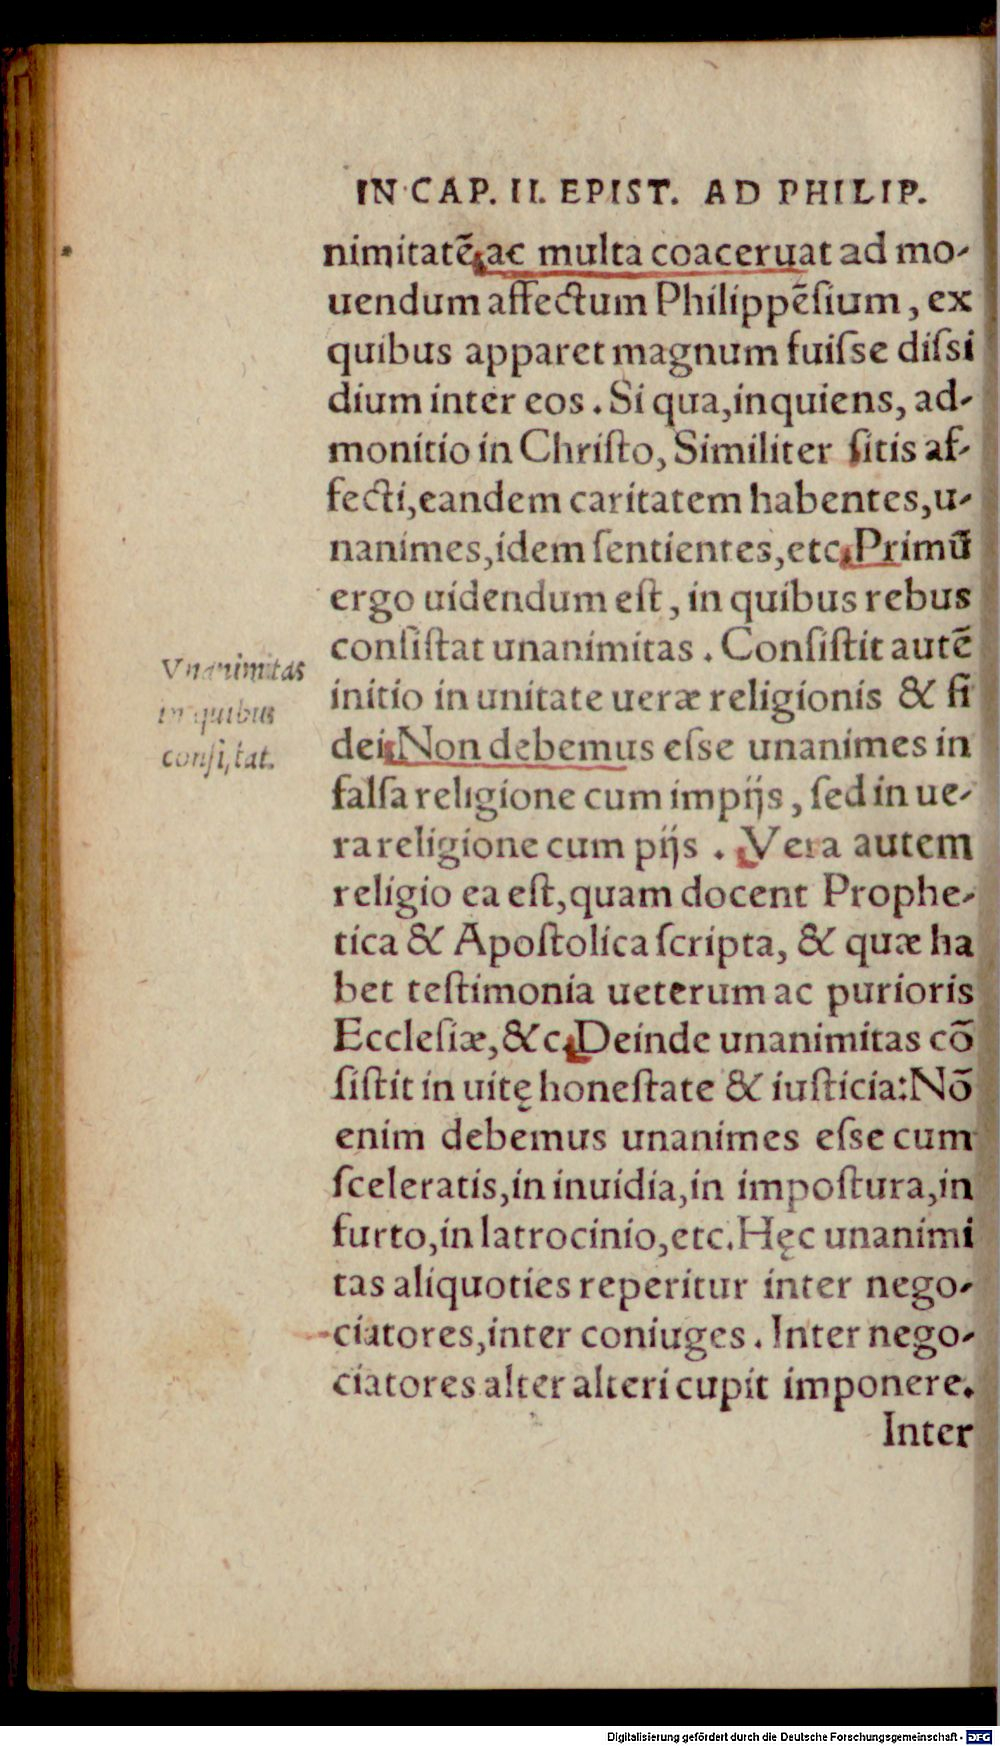 IN CAP. II. EPIST. AD PHILIP.
nimitatē, ac multa coaceruat ad mo-
uendum affectum Philippēſium, ex
quibus apparet magnum fuiſse diſsi
dium inter eos. Si qua, inquiens, ad-
monitio in Chriſto, Similiter ſitis af-
fecti, eandem caritatem habentes, u-
nanimes, idem ſentientes, etc. Primū
ergo uidendum eſt, in quibus rebus
conſiſtat unanimitas. Conſiſtit autē
initio in unitate ueræ religionis & fi
dei. Non debemus eſse unanimes in
falſa religione cum impijs, ſed in ue-
ra religione cum pijs. Vera autem
religio ea eſt, quam docent Prophe-
tica & Apoſtolica ſcripta, & quæ ha
bet teſtimonia ueterum ac purioris
Eccleſiæ, &c. Deinde unanimitas cō
ſiſtit in uitę honeſtate & iuſticia: Nō
enim debemus unanimes eſse cum
ſceleratis, in inuidia, in impoſtura, in
furto, in latrocinio, etc. Hęc unanimi
tas aliquoties reperitur inter nego-
ciatores, inter coniuges. Inter nego-
ciatores alter alteri cupit imponere.
Inter
Vnanimitas
in quibus
conſiſtat.
Digitalisierung gefördert durch die Deutsche Forschungsgemeinschaft - DFG